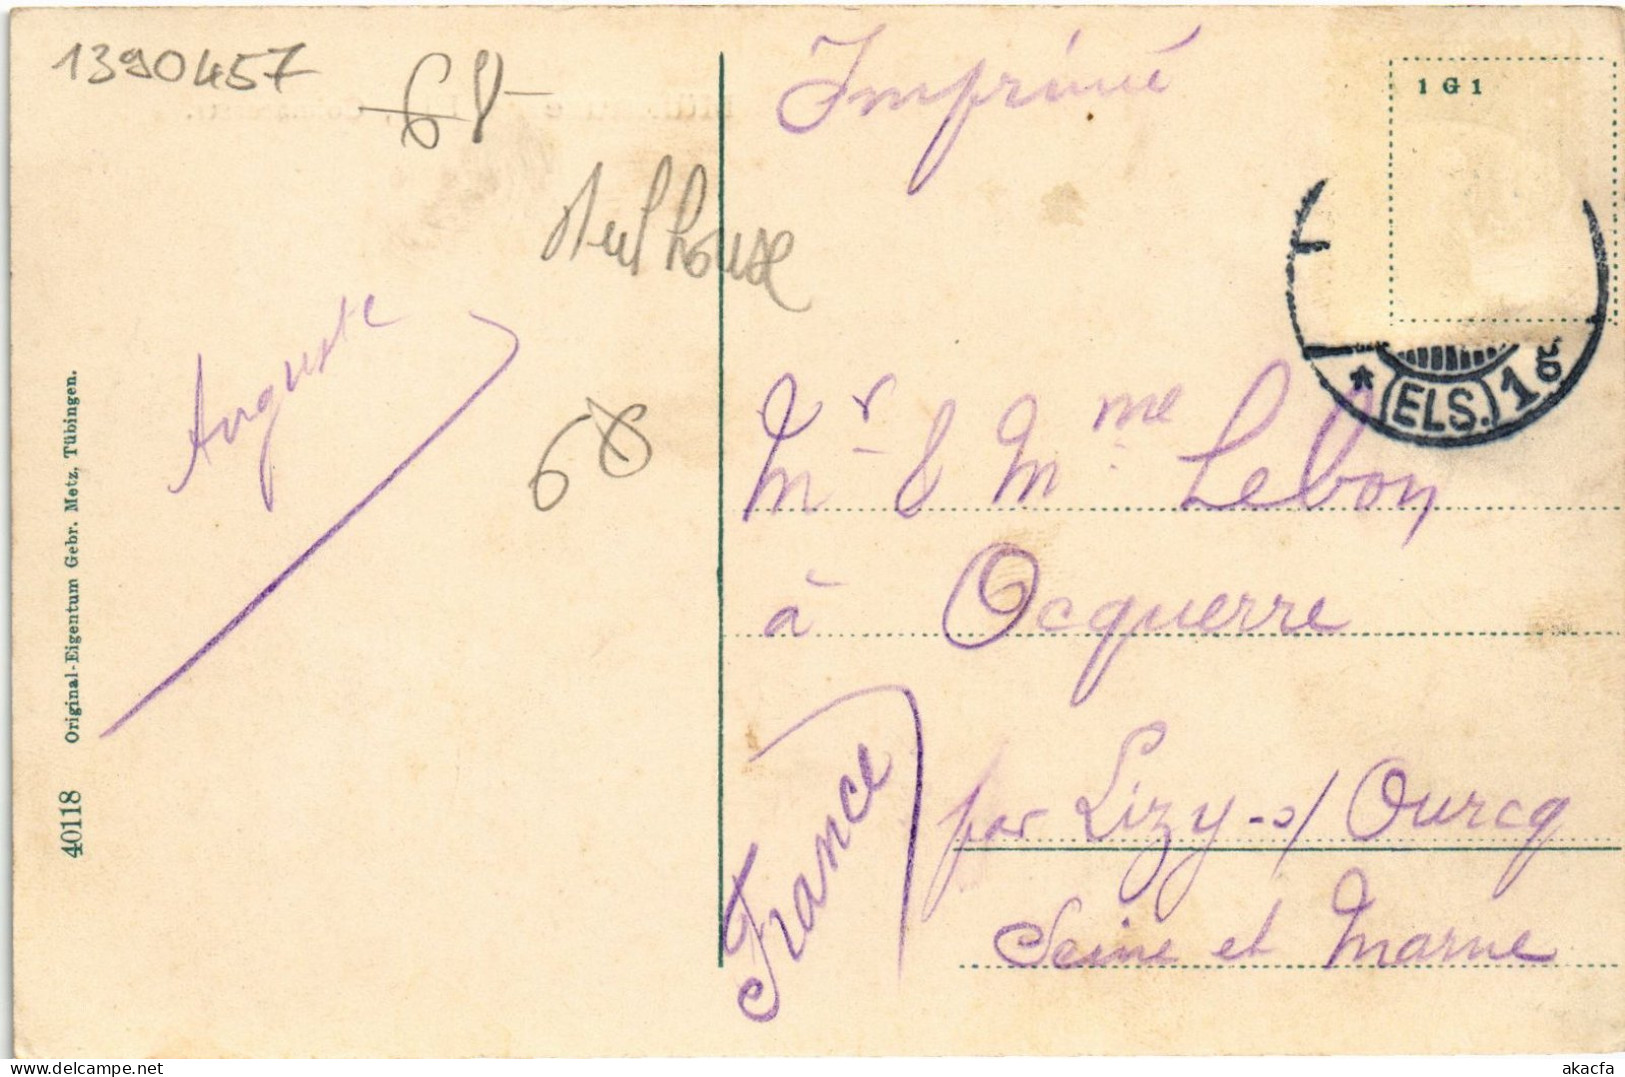 1390457
68
Imprimé
1 G 1
Mulhouse
Auguste
68
(ELS.) 1 g
Mr & Mme Lebon
à Ocquerre
par Lizy-s/Ourcq
Seine et Marne
France
40118 Original-Eigentum Gebr. Metz, Tübingen.
akacfa